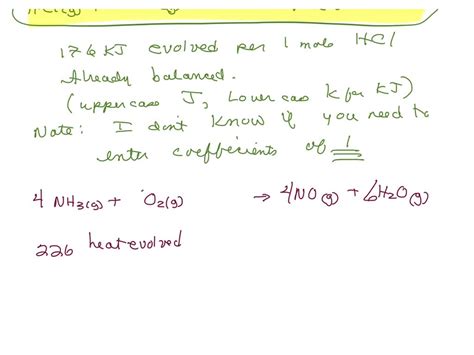 176 KJ evolved per 1 mole HCl
Already balanced.
(uppercase J, Lower cas k for KJ)
Note: I don't know if you need to
enter coefficients of 1
4 NH3(g) + O2(g) → 4NO(g) + 6H2O(g)
226 heat evolved